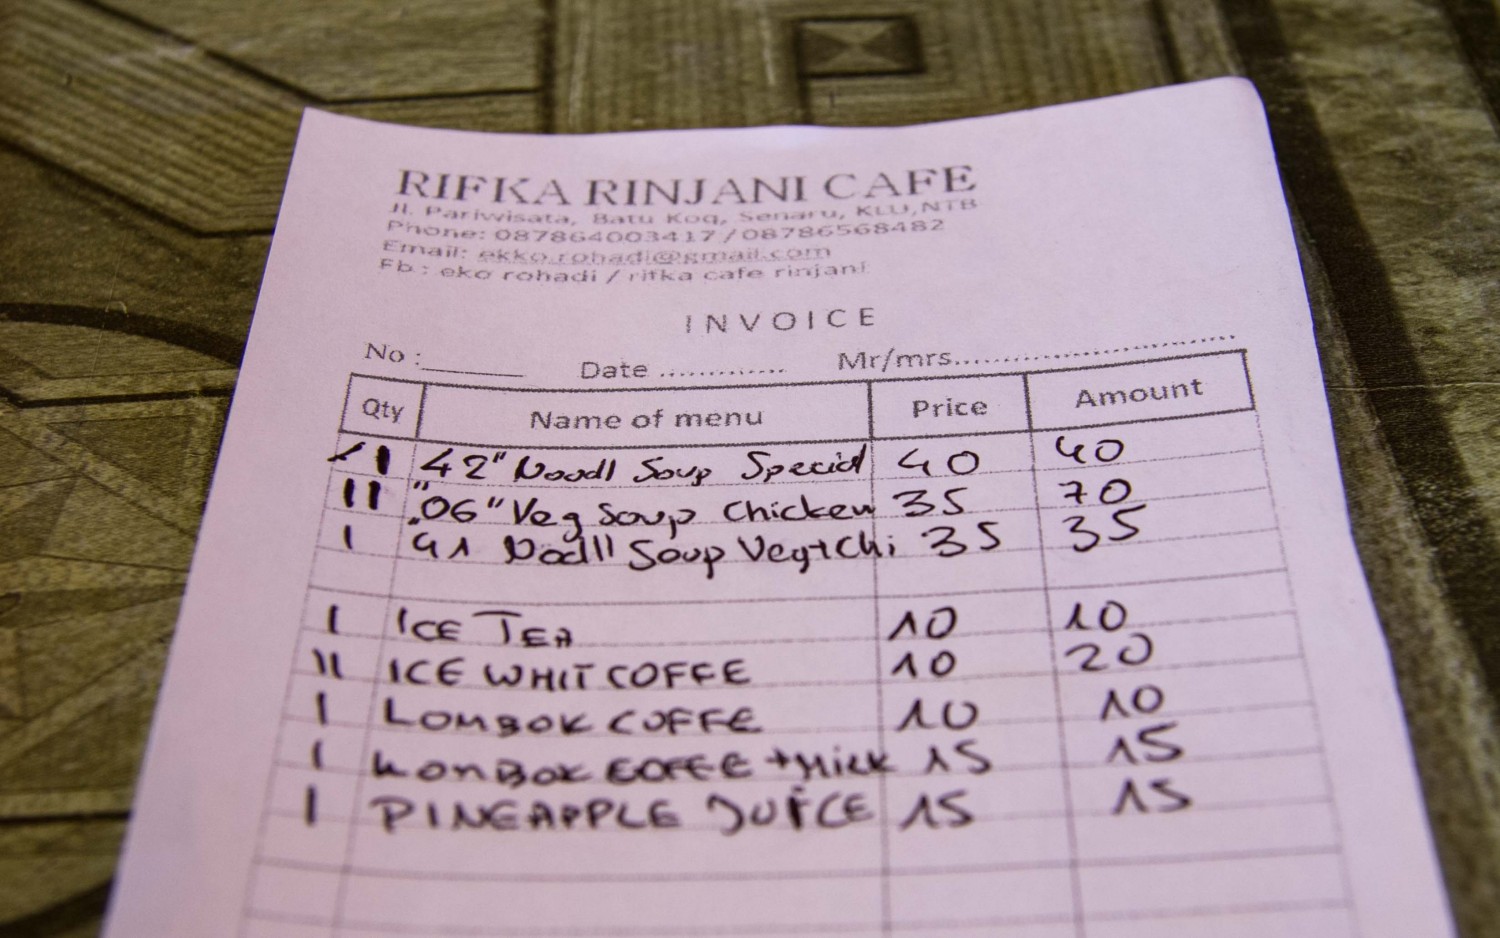 RIFKA RINJANI CAFE
Jl. Pariwisata, Batu Koq, Senaru, KLU,NTB
Phone: 087864003417 / 08786568482
Email: ekko.rohadi@gmail.com
Fb : eko rohadi / rifka cafe rinjani
INVOICE
No : Date Mr/mrs
Qty Name of menu Price Amount
I 42" Noodl Soup Special 40 40
II "06" Veg Soup Chicken 35 70
I 41 Nodll Soup Veg+Chi 35 35
I ICE TEA 10 10
II ICE WHIT COFFE 10 20
I LOMBOK COFFE 10 10
I LOMBOK COFFE +MILK 15 15
I PINEAPPLE JUICE 15 15